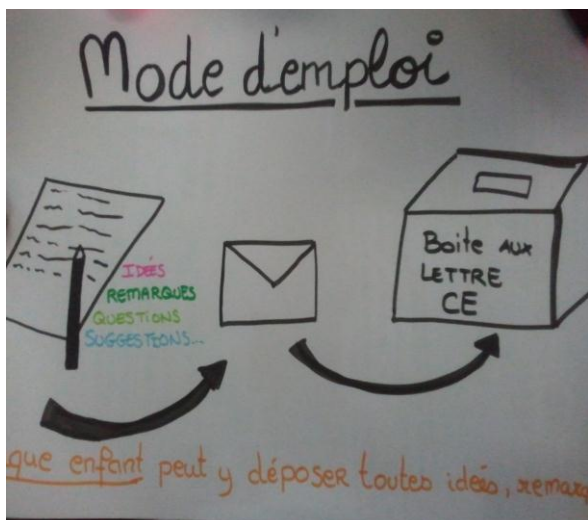 Mode d'emploi
IDÉES
REMARQUES
QUESTIONS
SUGGESTIONS...
Boite AUX
LETTRE
CE
que enfant peut y déposer toutes ideés, remarq